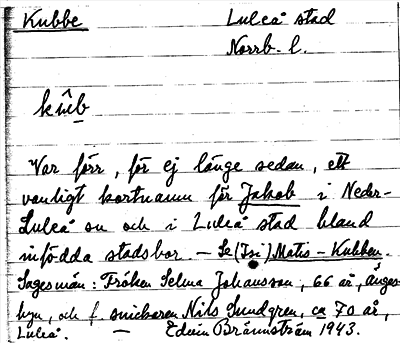 Kubbe Luleå stad
Norrb. l.
kûb
Var förr, för ej länge sedan, ett
vanligt kortnamn för Jakob i Neder-
Luleå sn och i Luleå stad bland
infödda stadsbor. – Se Matis-Kubben.
Sagesmän: Fröken Selma Johansson, 66 år, Änges-
byn, och f. snickaren Nils Sundgren, ca 70 år,
Luleå. – Edvin Brännström 1943.